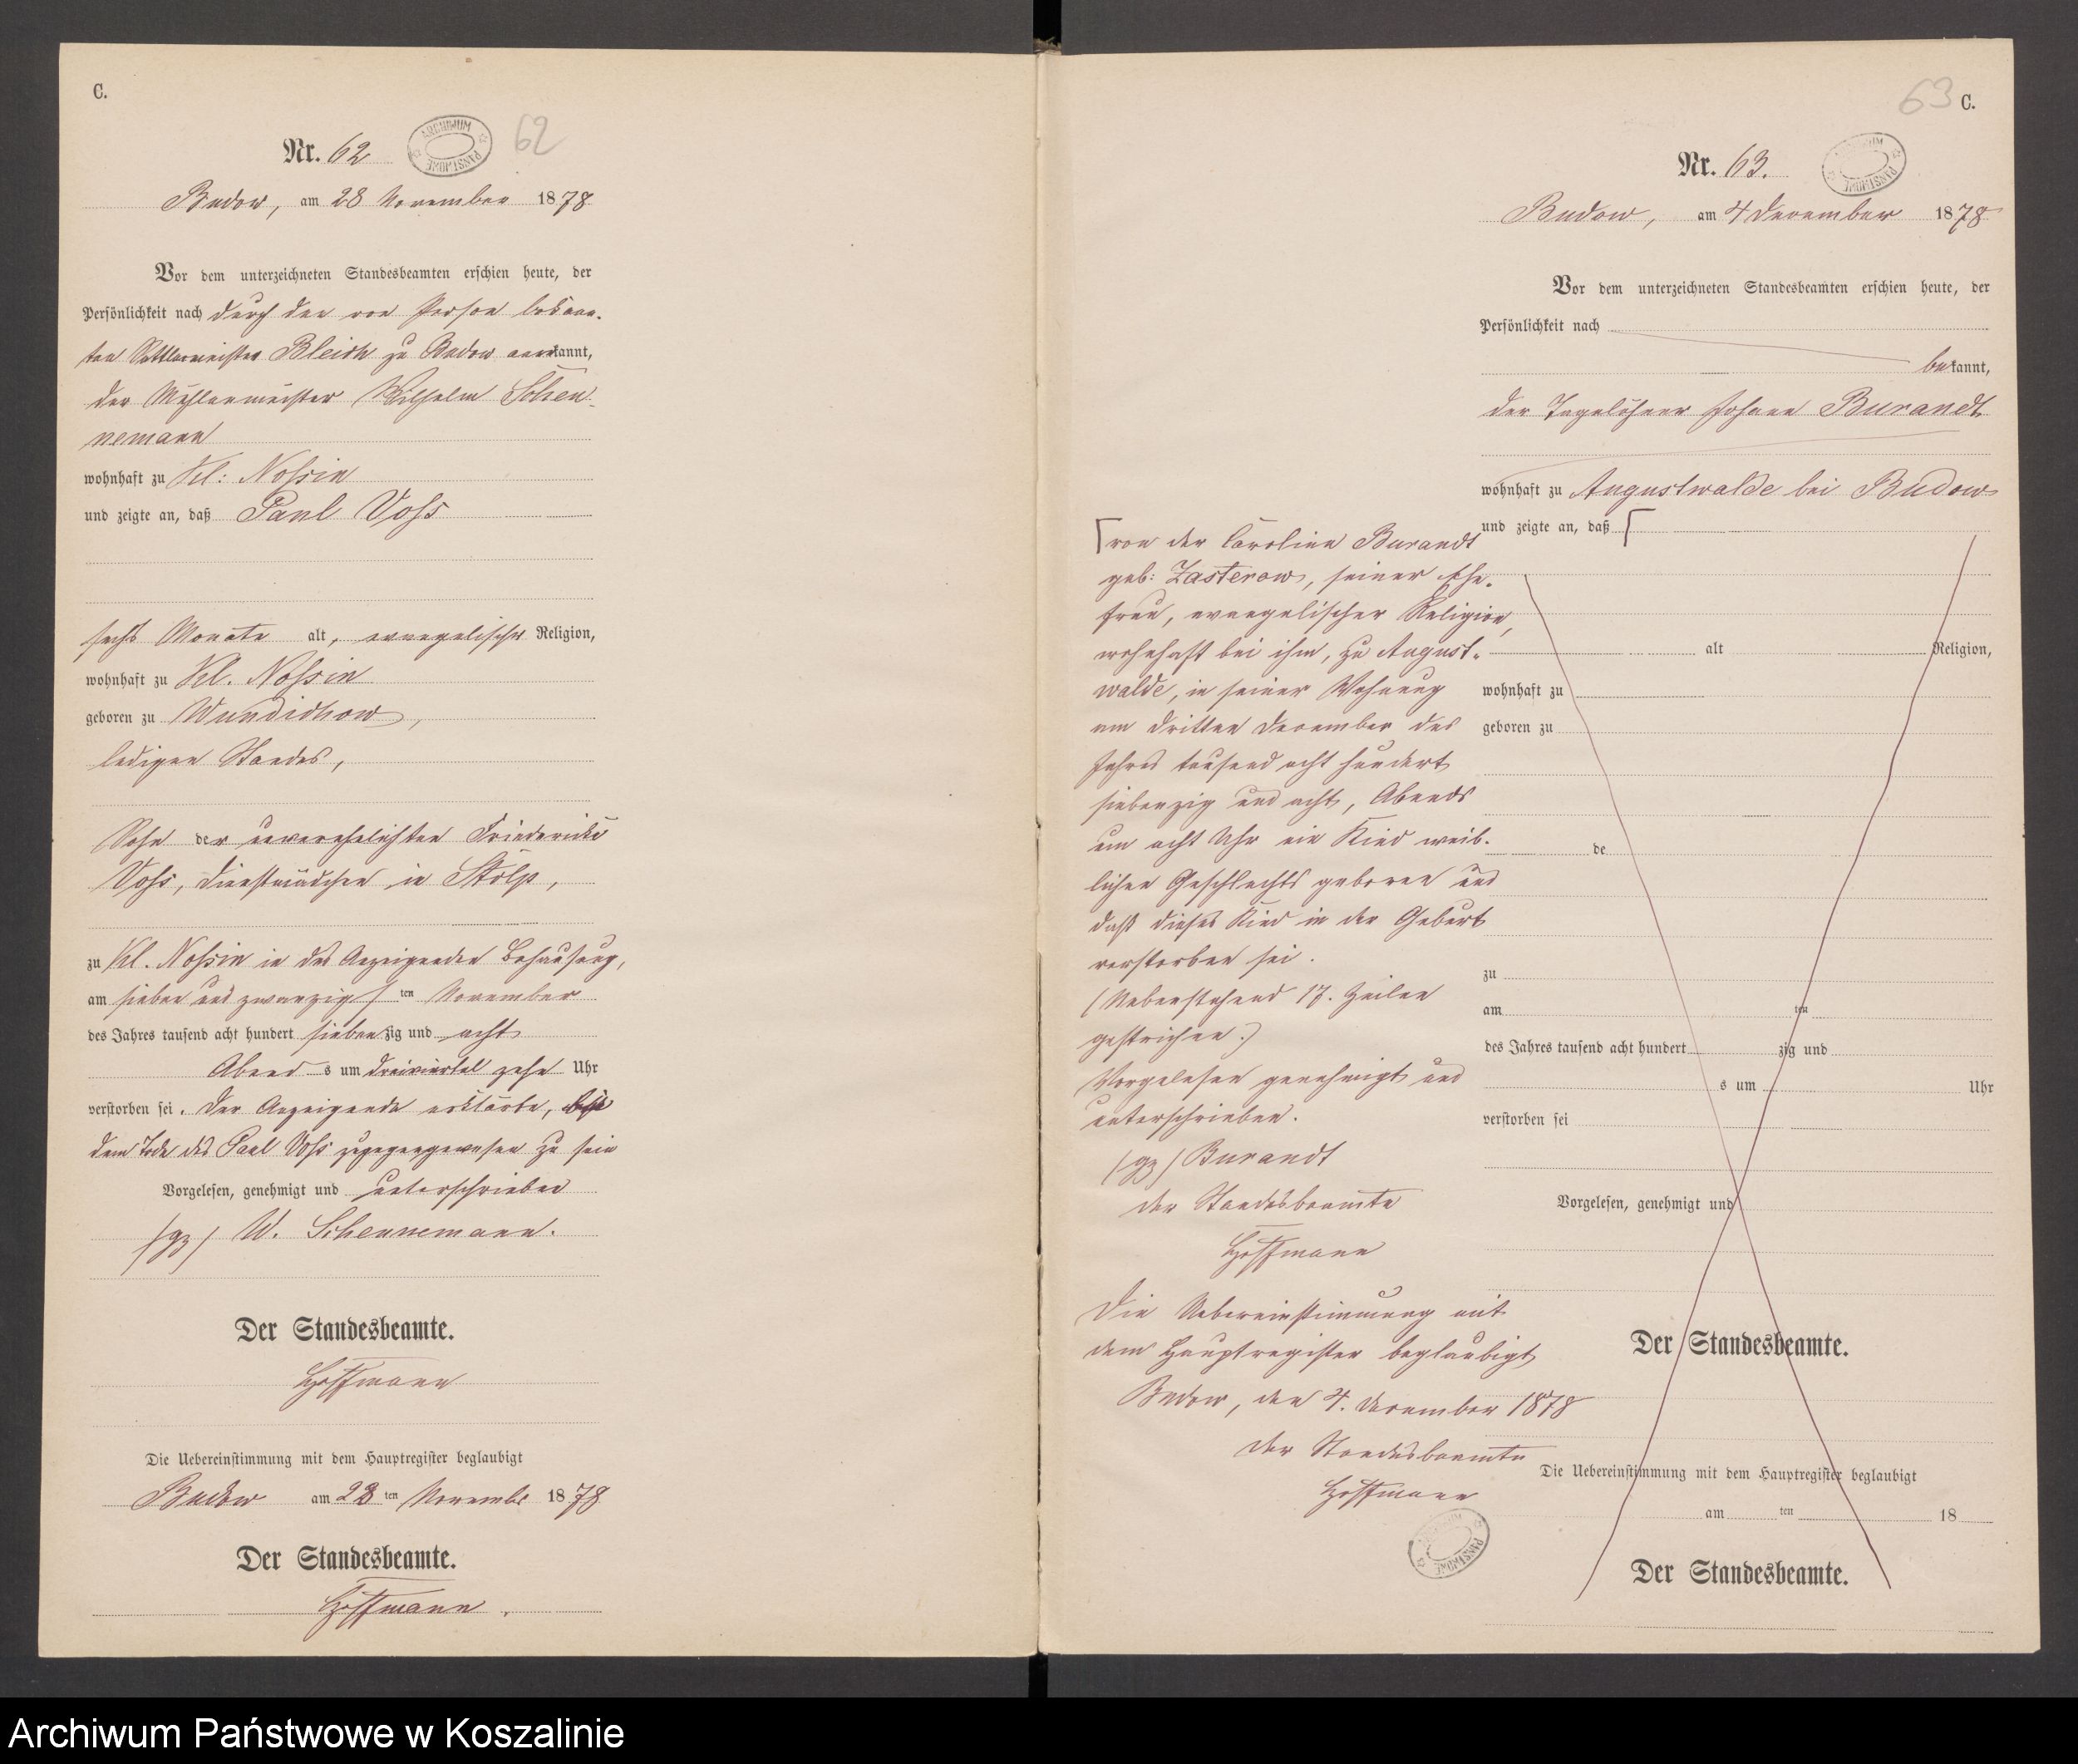 C.
Nr. 62
62
ARCHIWUM PAŃSTWOWE
Budow, am 28 November 1878
Vor dem unterzeichneten Standesbeamten erschien heute, der
Persönlichkeit nach durch den von Person bekann-
ten Sattlermeister Bleich zu Budow anerkannt,
der Mühlenmeister Wilhelm Schen-
nemann
wohnhaft zu Kl: Nossin
und zeigte an, daß Paul Voss
sechs Monate alt, evangelischer Religion,
wohnhaft zu Kl. Nossin
geboren zu Wundichow,
ledigen Standes,
Sohn der unverehelichten Friedericke
Voss, Dienstmädchen in Stolp,
zu Kl. Nossin in des Anzeigenden Behausung,
am sieben und zwanzigsten November
des Jahres tausend acht hundert siebenzig und acht
Abends um dreiviertel zehn Uhr
verstorben sei. Der Anzeigende erklärte, bei
dem Tode des Paul Voss zugegengewesen zu sein
Vorgelesen, genehmigt und unterschrieben
(gz) W. Schennemann.
Der Standesbeamte.
Hoffmann
Die Uebereinstimmung mit dem Hauptregister beglaubigt
Budow am 28ten Novembr 1878
Der Standesbeamte.
Hoffmann.
63 C.
Nr. 63.
ARCHIWUM PAŃSTWOWE
Budow, am 4 December 1878
Vor dem unterzeichneten Standesbeamten erschien heute, der
Persönlichkeit nach
bekannt,
der Tagelöhner Johann Burandt
wohnhaft zu Augustwalde bei Budow
und zeigte an, daß ⌈
⌈von der Caroline Burandt
geb: Zasterow, seiner Ehe-
frau, evangelischer Religion,
wohnhaft bei ihm, zu August-
walde, in seiner Wohnung
am dritten December des
Jahres tausend acht hundert
siebenzig und acht, Abends
um acht Uhr ein Kind weib-
lichen Geschlechts geboren und
daß dieses Kind in der Geburt
verstorben sei.
(Nebenstehend 17. Zeilen
gestrichen.)
Vorgelesen genehmigt und
unterschrieben.
(gz) Burandt
der Standesbeamte
Hoffmann
Die Uebereinstimmung mit
dem Hauptregister beglaubigt
Budow, den 4. December 1878
der Standesbeamte
Hoffmann
ARCHIWUM PAŃSTWOWE
alt Religion,
wohnhaft zu
geboren zu
de
zu
am ten
des Jahres tausend acht hundert zig und
s um Uhr
verstorben sei
Vorgelesen, genehmigt und
Der Standesbeamte.
Die Uebereinstimmung mit dem Hauptregister beglaubigt
am ten 18
Der Standesbeamte.
Archiwum Państwowe w Koszalinie